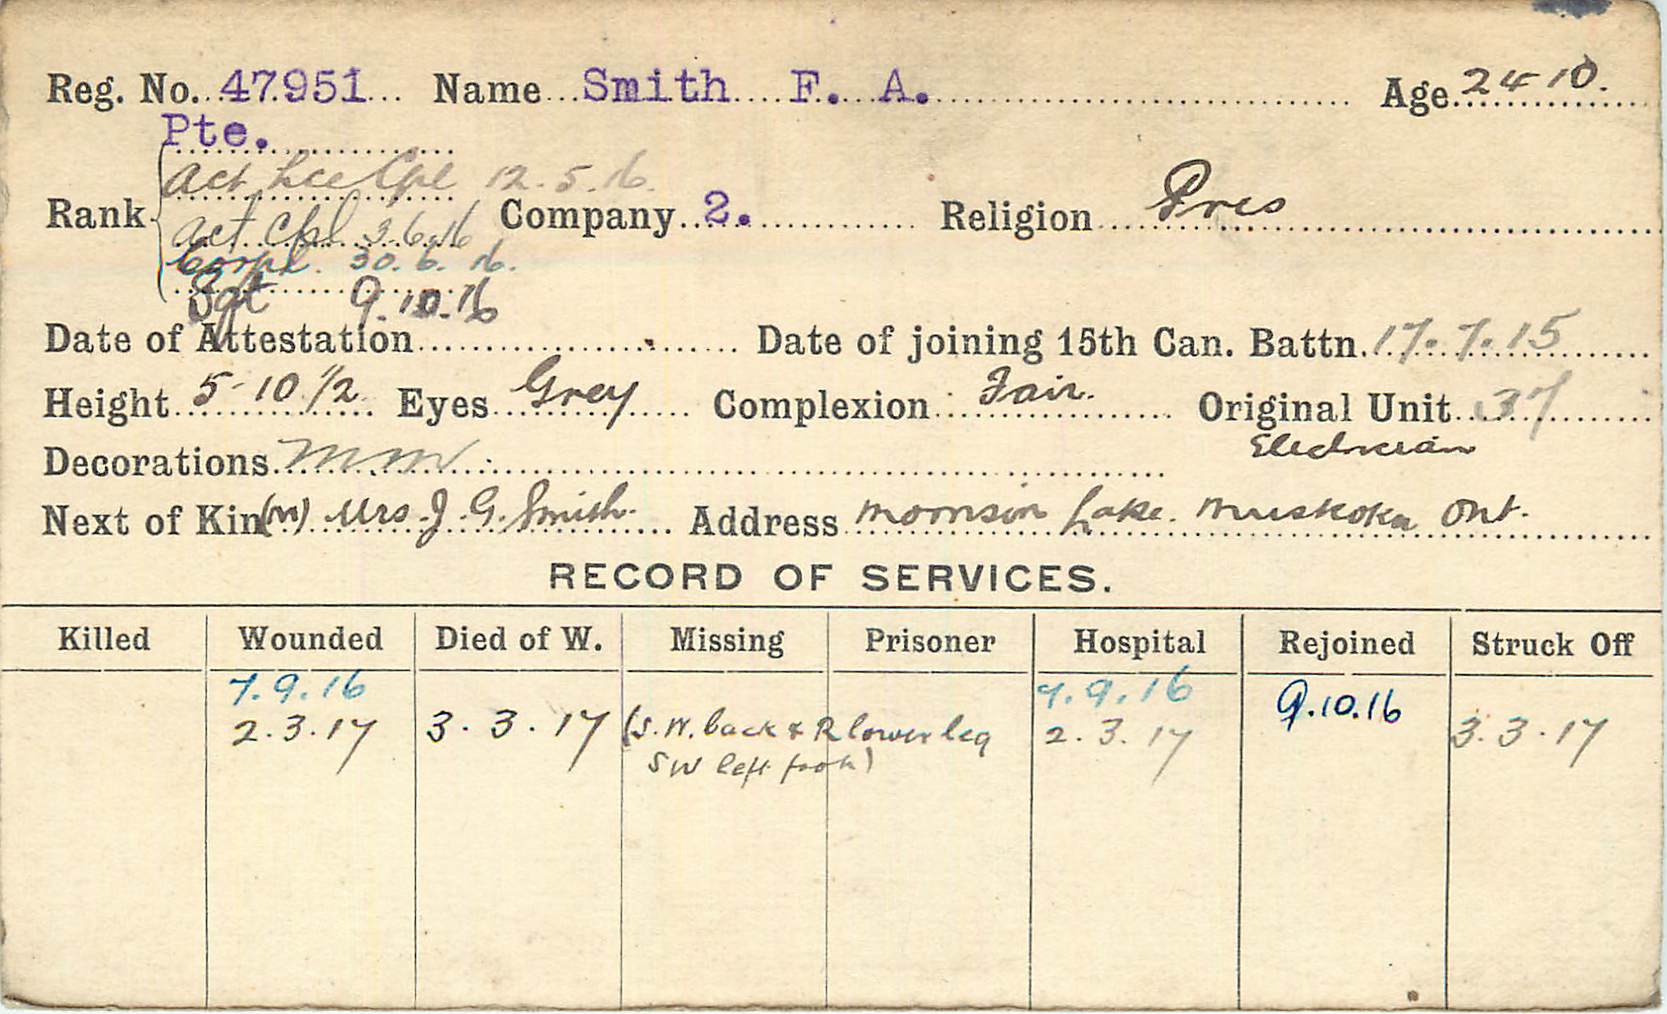 Reg. No. 47951 Name Smith F. A. Age 24-10.
Pte.
Act Lce Cpl 12.5.16.
Rank Act Cpl 3.6.16 Company 2. Religion Pres
Corpl. 30.6.16.
Sgt 9.10.16
Date of Attestation Date of joining 15th Can. Battn. 17.7.15
Height 5-10 1/2 Eyes Grey Complexion Fair. Original Unit 37
Electrician
Decorations MM
Next of Kin (m) Mrs J. G. Smith. Address Morrison Lake. Muskoka Ont.
RECORD OF SERVICES.
Killed Wounded Died of W. Missing Prisoner Hospital Rejoined Struck Off
7.9.16 7.9.16 9.10.16
2.3.17 3.3.17 (S.W. back & R lower leg 2.3.17 3.3.17
SW left foot)